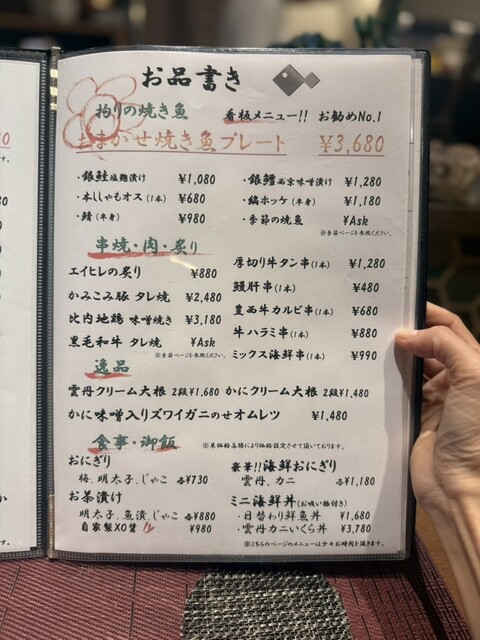 お品書き
拘りの焼き魚
看板メニュー!! お勧めNo.1
おまかせ焼き魚プレート ¥3,680
・銀鮭塩麹漬け ¥1,080
・本ししゃもオス(1本) ¥680
・鯖(半身) ¥980
・銀鱈西京味噌漬け ¥1,280
・縞ホッケ(半身) ¥1,180
・季節の焼魚 ¥Ask
※季節ページを参照ください。
串焼・肉・炙り
エイヒレの炙り ¥880
かみこみ豚 タレ焼 ¥2,480
比内地鶏 味噌焼き ¥3,180
黒毛和牛 タレ焼 ¥Ask
※季節ページを参照ください。
厚切り牛タン串(1本) ¥1,280
鰻肝串(1本) ¥480
豊西牛カルビ串(1本) ¥680
牛ハラミ串(1本) ¥880
ミックス海鮮串(1本) ¥990
逸品
雲丹クリーム大根 2段¥1,680
かにクリーム大根 2段¥1,480
かに味噌入りズワイガニのせオムレツ ¥1,480
食事・御飯
※米価格高騰により価格設定させて頂いております。
おにぎり
梅、明太子、じゃこ 各¥730
お茶漬け
明太子、魚漬、じゃこ 各¥880
自家製XO醤 ¥980
豪華!!海鮮おにぎり
雲丹、カニ 各¥1,180
ミニ海鮮丼(お吸い物付き)
・日替わり鮮魚丼 ¥1,680
・雲丹カニいくら丼 ¥3,780
※こちらのページのメニューは少々お時間を頂きます。